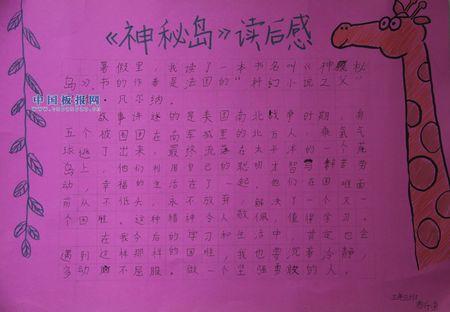 《神秘岛》读后感
暑假里，我读了一本书名叫《神秘
岛》书的作者是法国的"科幻小说之父"
·凡尔纳。
故事讲述的是美国南北战争时期，有
五个被困在南军城里的北方人，乘氢气
球逃了出来，最终流落在太平洋的一个荒
岛上，他们利用自己的聪明才智与辛苦劳
动，幸福的生活在了一起。他们在困难面
前从不低头，永不放弃，解决了一个又一
个困难。这种精神令人敬佩，值得学习。
在我今后的学习和生活中，肯定也会
遇到这样那样的困难，我也要沉着冷静，
多动不屈服。做一个坚强勇敢的人。
中国板报网